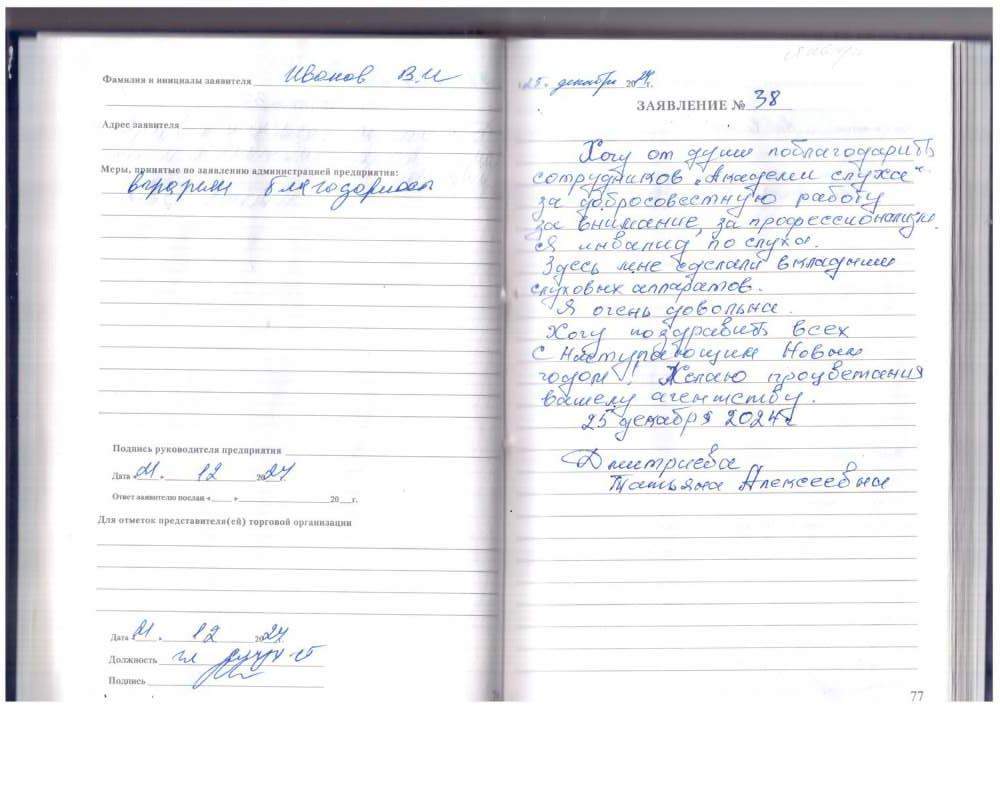 Фамилия и инициалы заявителя Иванов В.И
Адрес заявителя
Меры, принятые по заявлению администрацией предприятия:
Подпись руководителя предприятия
Дата 21. 12 2024
Ответ заявителю послан « » 20 г.
Для отметок представителя(ей) торговой организации
Дата 21. 12 2024
Должность гл
Подпись
25. декабря 2024г.
ЗАЯВЛЕНИЕ № 38
Хочу от души поблагодарить
сотрудников „Академии слуха“
за добросовестную работу
за внимание, за профессионализм.
Я инвалид по слуху.
Здесь мне сделали вкладыши
слуховых аппаратов.
Я очень довольна.
Хочу поздравить всех
с Наступающим Новым
годом! Желаю процветания
вашему агентству.
25 декабря 2024г
Дмитриева
Татьяна Алексеевна
77